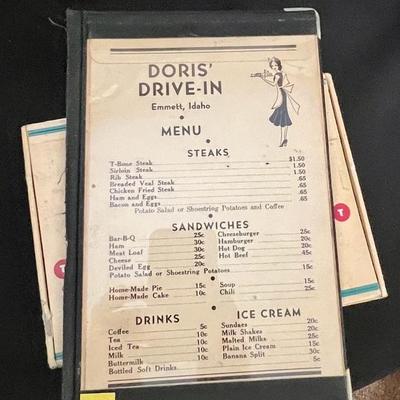 DORIS'
DRIVE-IN
Emmett, Idaho
MENU
STEAKS
T-Bone Steak $1.50
Sirloin Steak 1.50
Rib Steak 1.50
Breaded Veal Steak .65
Chicken Fried Steak .65
Ham and Eggs .65
Bacon and Eggs .65
Potato Salad or Shoestring Potatoes and Coffee
SANDWICHES
Bar-B-Q 25c Cheeseburger 25c
Ham 30c Hamburger 20c
Meat Loaf 30c Hot Dog 20c
Cheese 25c Hot Beef .45c
Deviled Egg 20c
Potato Salad or Shoestring Potatoes 15c
Home-Made Pie 15c Soup 15c
Home-Made Cake 10c Chili 25c
DRINKS ICE CREAM
Coffee 5c Sundaes 20c
Tea 10c Milk Shakes 20c
Iced Tea 10c Malted Milks 25c
Milk 10c Plain Ice Cream 15c
Buttermilk 10c Banana Split 30c
Bottled Soft Drinks 5c
T